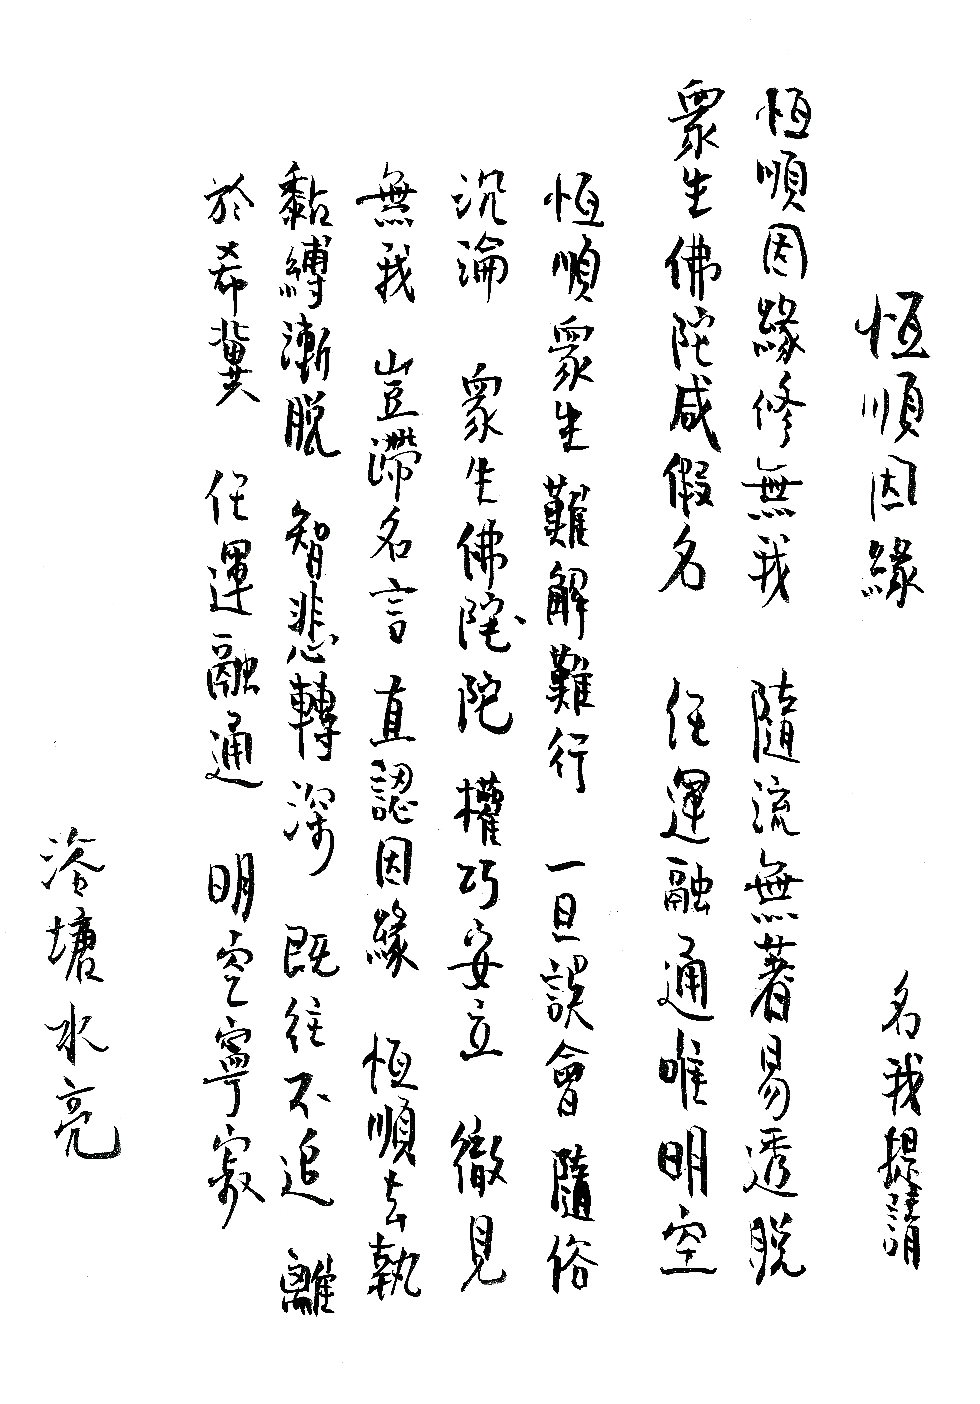 恆順因緣
名我提請
恆順因緣修無我 隨流無著易透脫
眾生佛陀咸假名 任運融通唯明空
恆順眾生難解難行 一旦誤會隨俗
沉淪 眾生佛陀陀 權巧安立 徹見
無我 豈滯名言 直認因緣 恆順去執
黏縛漸脫 智悲轉深 既往不追 離
於希冀 任運融通 明空寧寂
洛塘水亮